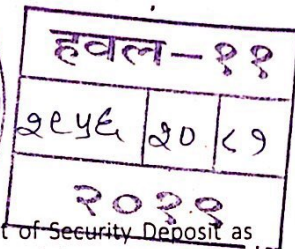 हवल-११
२९५६ २० ८१
of Security Deposit as